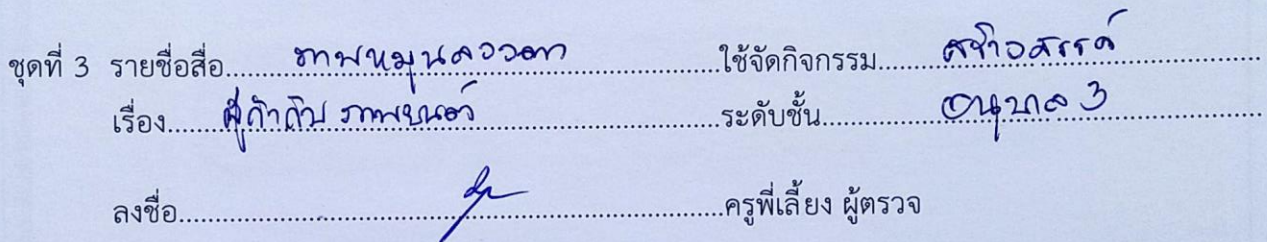 ชุดที่ 3 รายชื่อสื่อ.....ภาพหมุนลวงตา.....ใช้จัดกิจกรรม.....สร้างสรรค์.....
เรื่อง.....ผู้กำกับ ภาพยนตร์.....ระดับชั้น.....อนุบาล 3.....
ลงชื่อ..........ครูพี่เลี้ยง ผู้ตรวจ